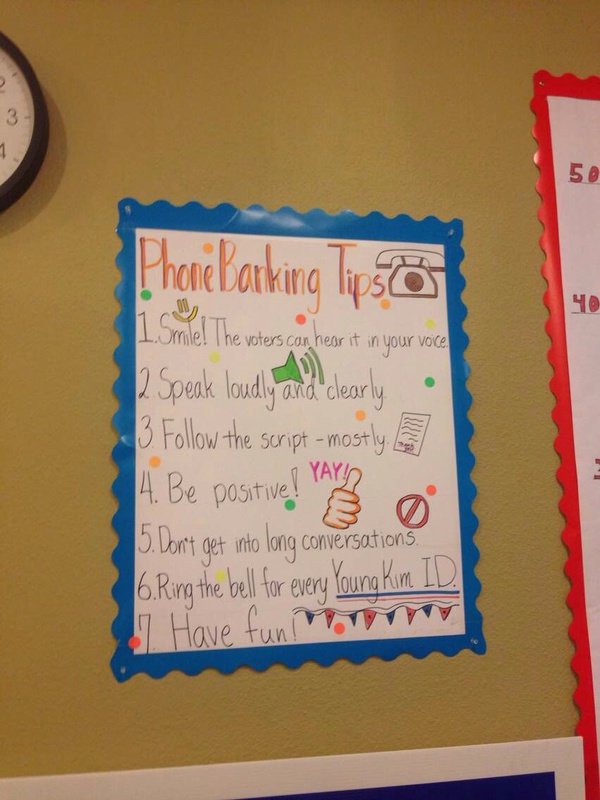 Phone Banking Tips
1. Smile! The voters can hear it in your voice.
2. Speak loudly and clearly.
3 Follow the script - mostly.
4. Be positive! YAY!
5. Don't get into long conversations.
6. Ring the bell for every Young Kim ID.
7. Have fun!
3
4
50
40